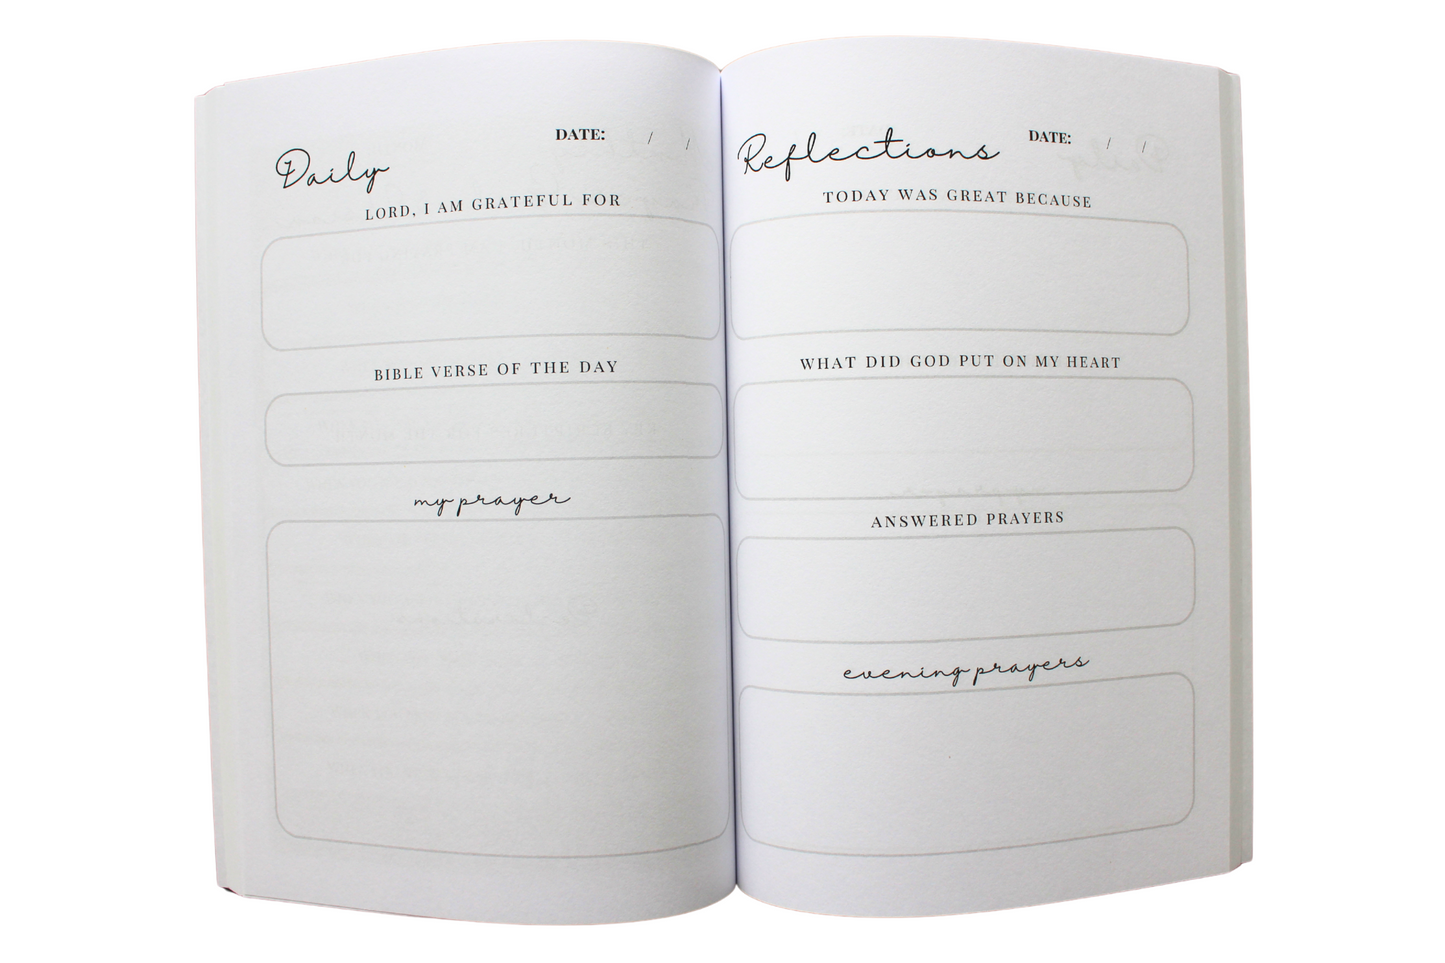 Daily
DATE: / /
LORD, I AM GRATEFUL FOR
BIBLE VERSE OF THE DAY
my prayer
Reflections
DATE: / /
TODAY WAS GREAT BECAUSE
WHAT DID GOD PUT ON MY HEART
ANSWERED PRAYERS
evening prayers